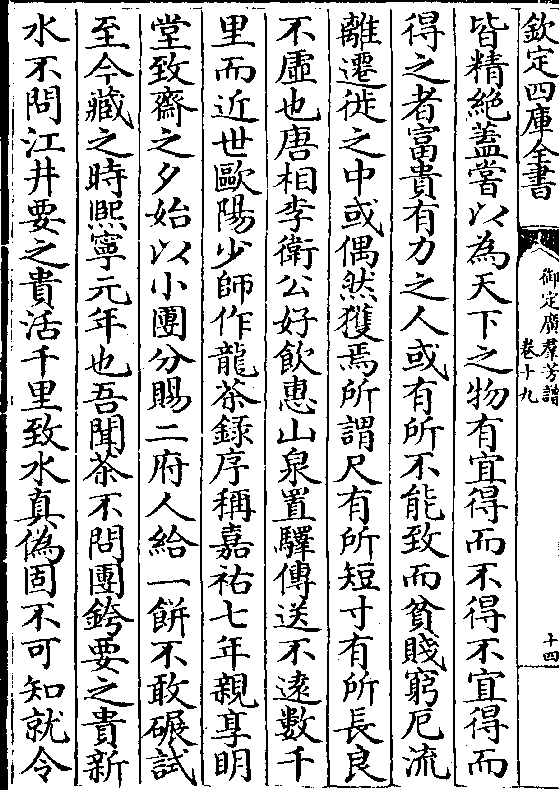 欽定四庫全書
御定廣羣芳譜
卷十九
十四
皆精絶蓋嘗以為天下之物有宜得而不得不宜得而
得之者富貴有力之人或有所不能致而貧賤窮厄流
離遷徙之中或偶然獲焉所謂尺有所短寸有所長良
不虛也唐相李衛公好飲惠山泉置驛傳送不遠數千
里而近世歐陽少師作龍茶錄序稱嘉祐七年親享明
堂致齋之夕始以小團分賜二府人給一餅不敢碾試
至今藏之時熙寧元年也吾聞茶不問團銙要之貴新
水不問江井要之貴活千里致水真偽固不可知就令